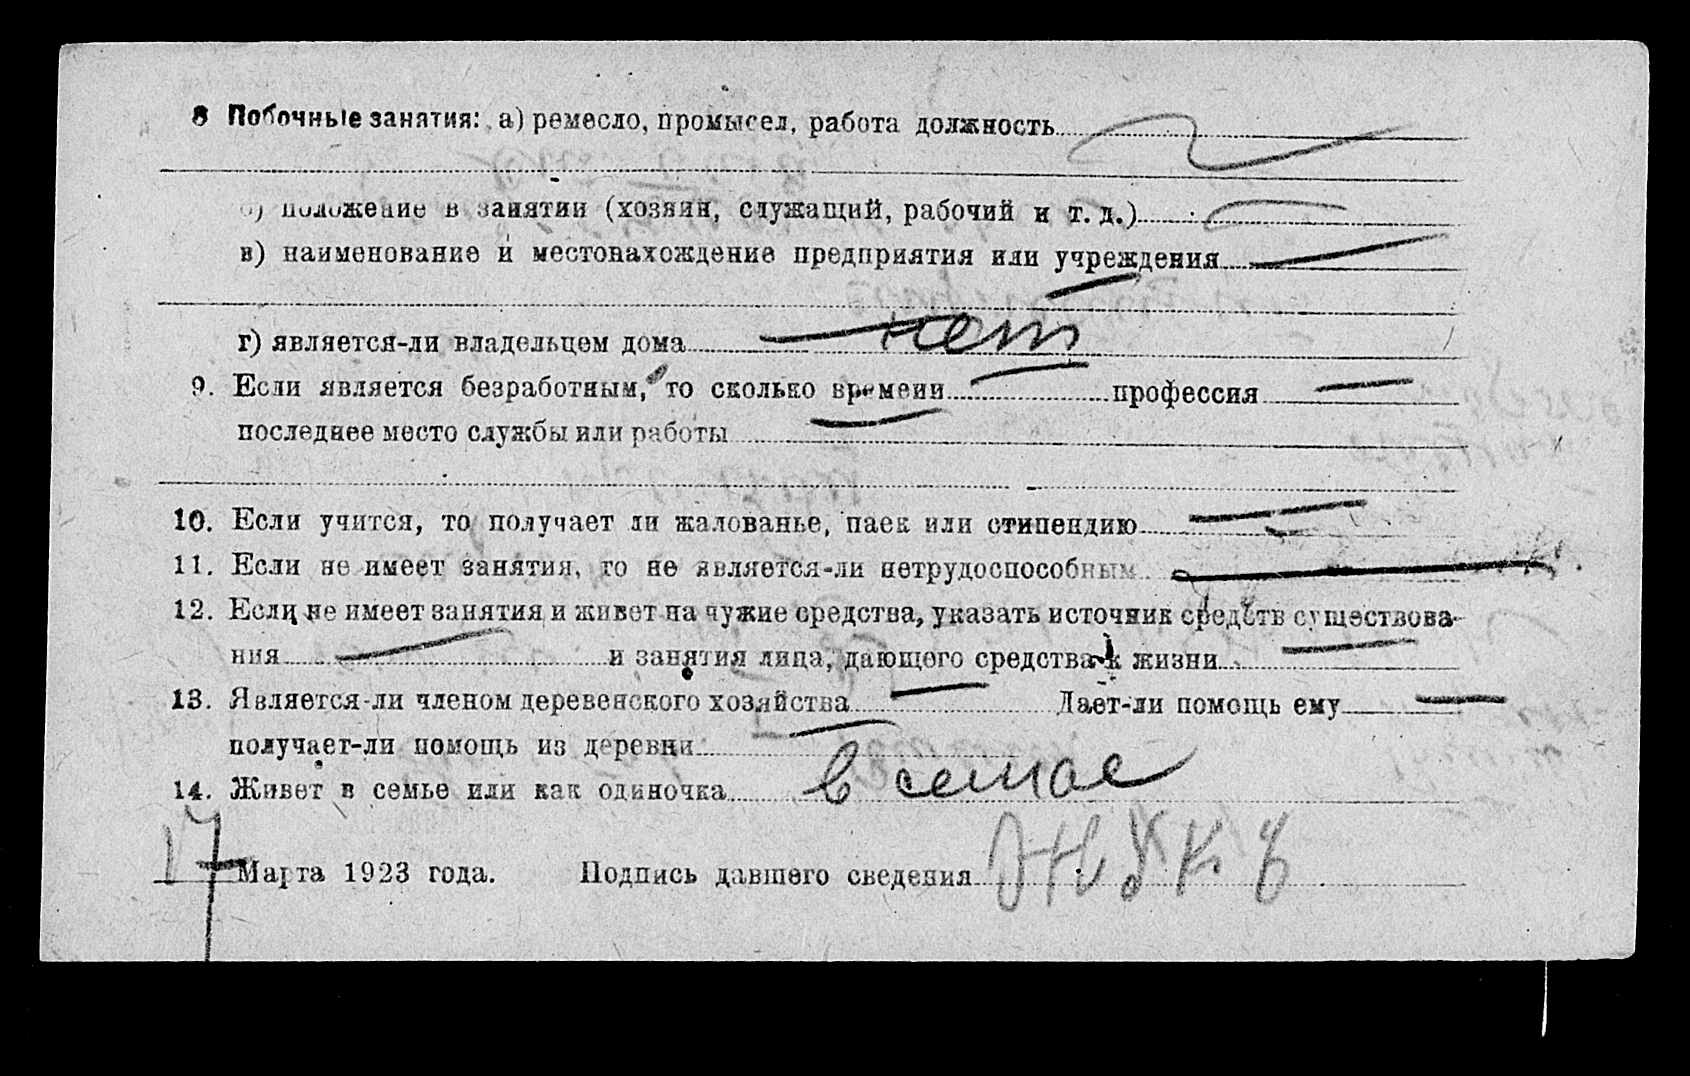 8 Побочные занятия: а) ремесло, промысел, работа должность
б) положение в занятии (хозяин, служащий, рабочий и т. д.)
в) наименование и местонахождение предприятия или учреждения
г) является-ли владельцем дома нет
9. Если является безработным, то сколько времени профессия
последнее место службы или работы
10. Если учится, то получает ли жалованье, паек или стипендию
11. Если не имеет занятия, то не является-ли нетрудоспособным
12. Если не имеет занятия и живет на чужие средства, указать источник средств существова-
ния и занятия лица, дающого средства к жизни
13. Является-ли членом деревенского хозяйства Дает-ли помощь ему
получает-ли помощь из деревни
14. Живет в семье или как одиночка в семье
17 Марта 1923 года. Подпись давшего сведения